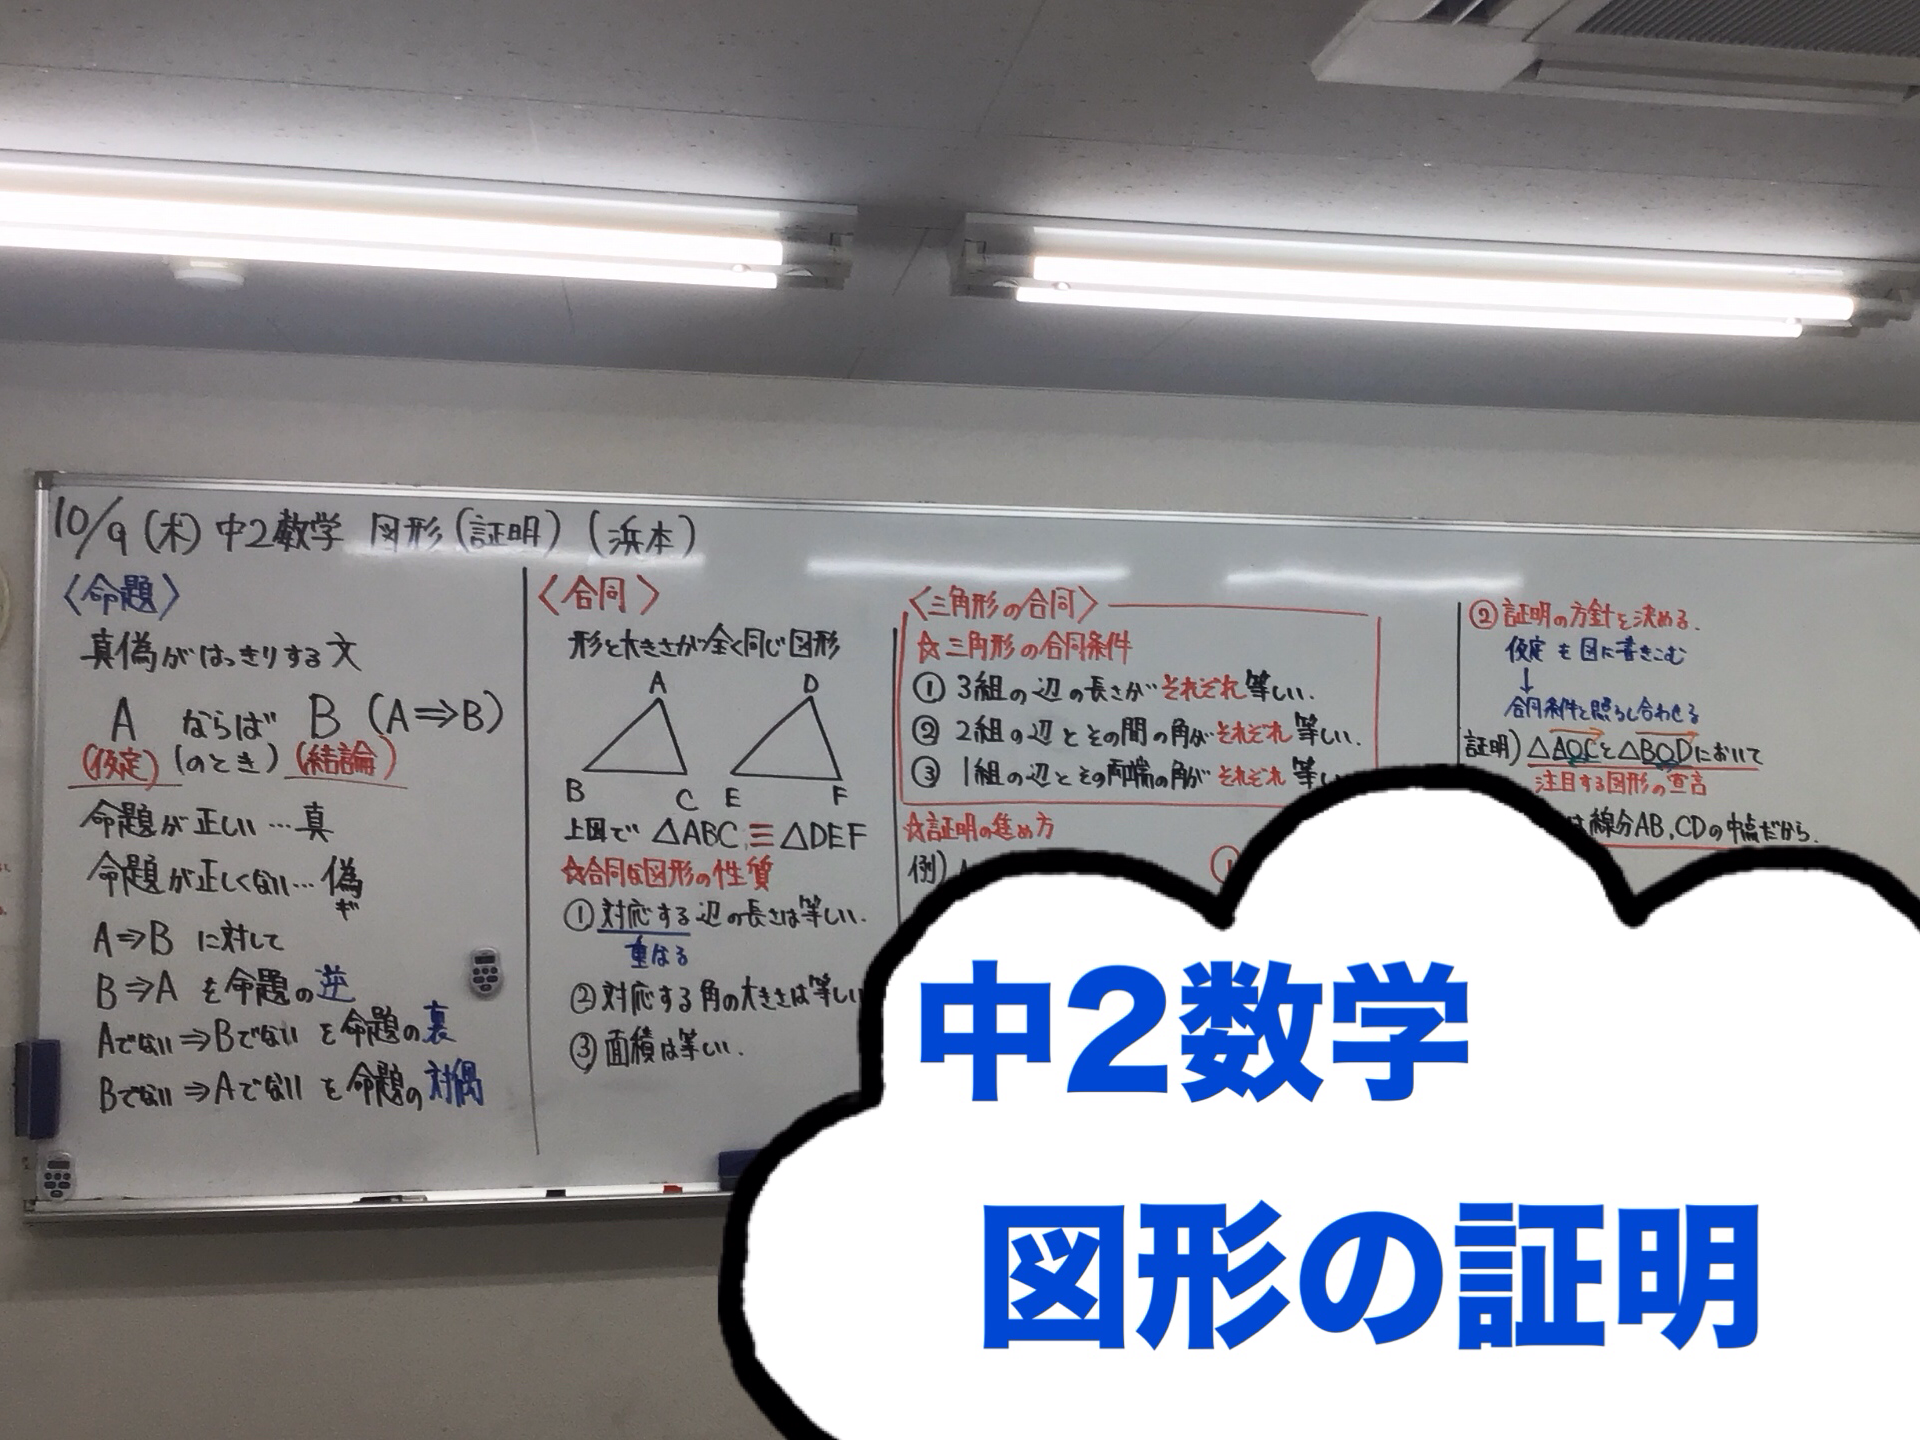 10/9(木) 中2数学 図形(証明) (浜本)
〈命題〉
真偽がはっきりする文
A ならば B (A⇒B)
(仮定) (のとき) (結論)
命題が正しい…真
命題が正しくない…偽
ギ
A⇒B に対して
B⇒A を命題の逆
Aでない⇒Bでない を命題の裏
Bでない⇒Aでない を命題の対偶
〈合同〉
形と大きさが全く同じ図形
A
D
B
C
E
F
上図で △ABC≡△DEF
☆合同な図形の性質
①対応する辺の長さは等しい.
重なる
②対応する角の大きさは等しい
③面積は等しい.
〈三角形の合同〉
☆三角形の合同条件
①3組の辺の長さがそれぞれ等しい.
②2組の辺とその間の角がそれぞれ等しい.
③1組の辺とその両端の角がそれぞれ等し
☆証明の進め方
例)
②証明の方針を決める.
仮定を図に書きこむ
↓
合同条件と照らし合わせる
証明)△AOCと△BODにおいて
注目する図形の宣言
は線分AB,CDの中点だから.
中2数学
図形の証明